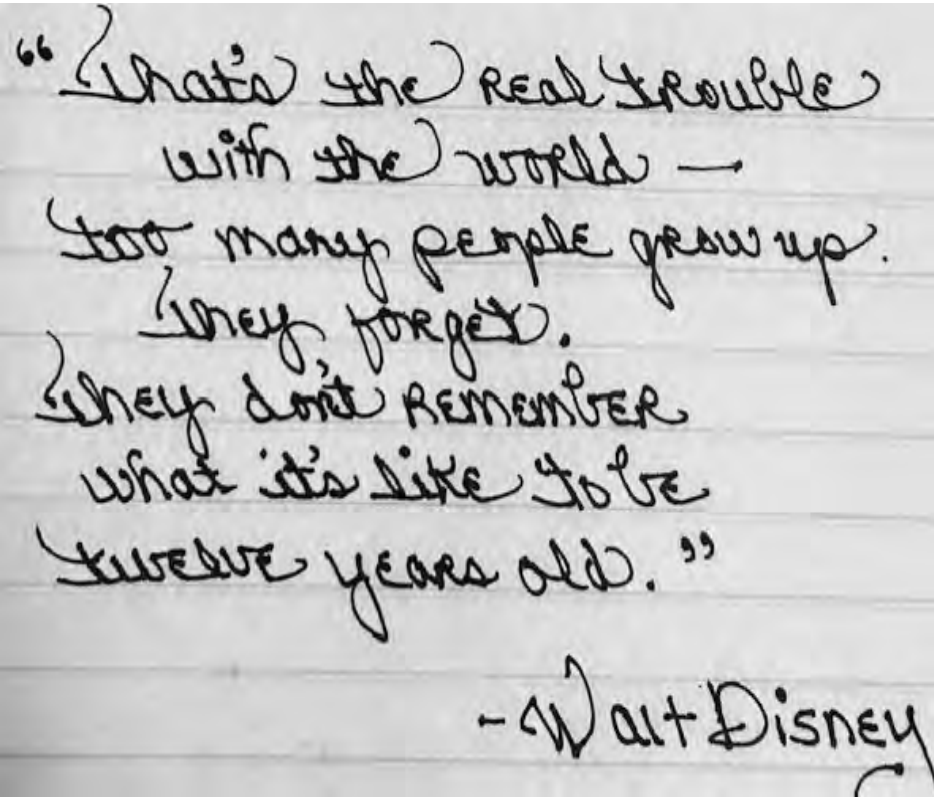 “That's the real trouble
with the world —
too many people grow up.
They forget.
They don't remember
what it's like to be
twelve years old.”
-Walt Disney